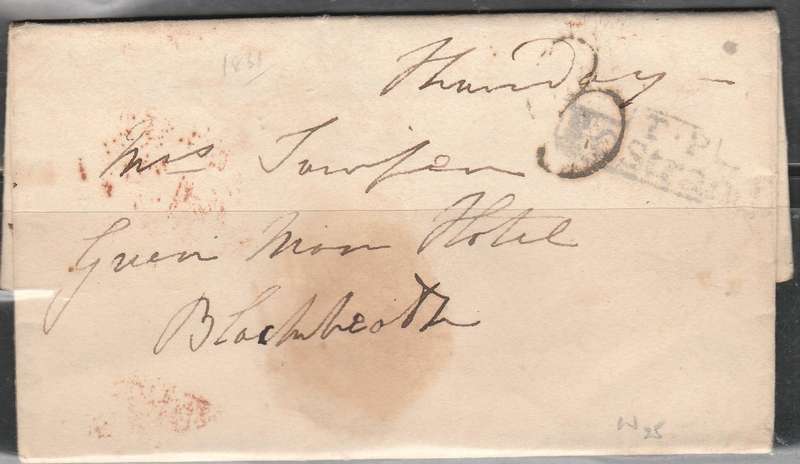 1831
Thursday -
3
T.P
Mrs
Green Man Hotel
Blackheath
W